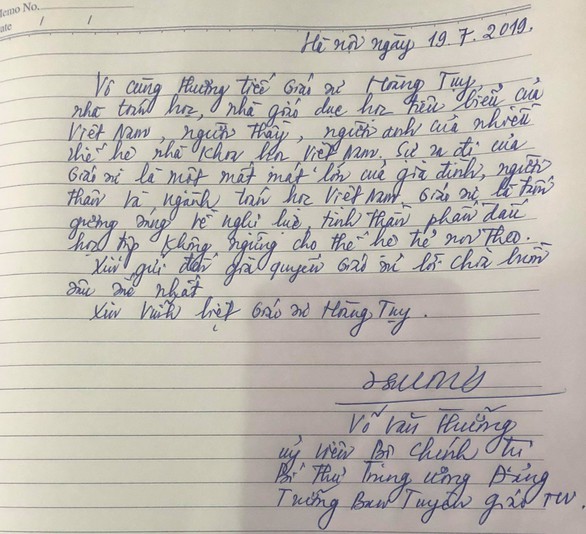 Memo No.
Date / /
Hà nội ngày 19.7.2019.
Vô cùng thương tiếc Giáo sư Hoàng Tụy
nhà toán học, nhà giáo dục học tiêu biểu của
Việt Nam, người thầy, người anh của nhiều
thế hệ nhà khoa học Việt Nam. Sự ra đi của
Giáo sư là một mất mát lớn của gia đình, người
thân và ngành toán học Việt Nam. Giáo sư là tấm
gương sáng về nghị lực, tinh thần phấn đấu
học tập không ngừng cho thế hệ trẻ noi theo.
Xin gửi đến gia quyến Giáo sư lời chia buồn
sâu sắc nhất
Xin vĩnh biệt Giáo sư Hoàng Tụy.
Võ Văn Thưởng
uỷ viên Bộ Chính trị
Bí thư Trung ương Đảng
Trưởng Ban Tuyên giáo TW.